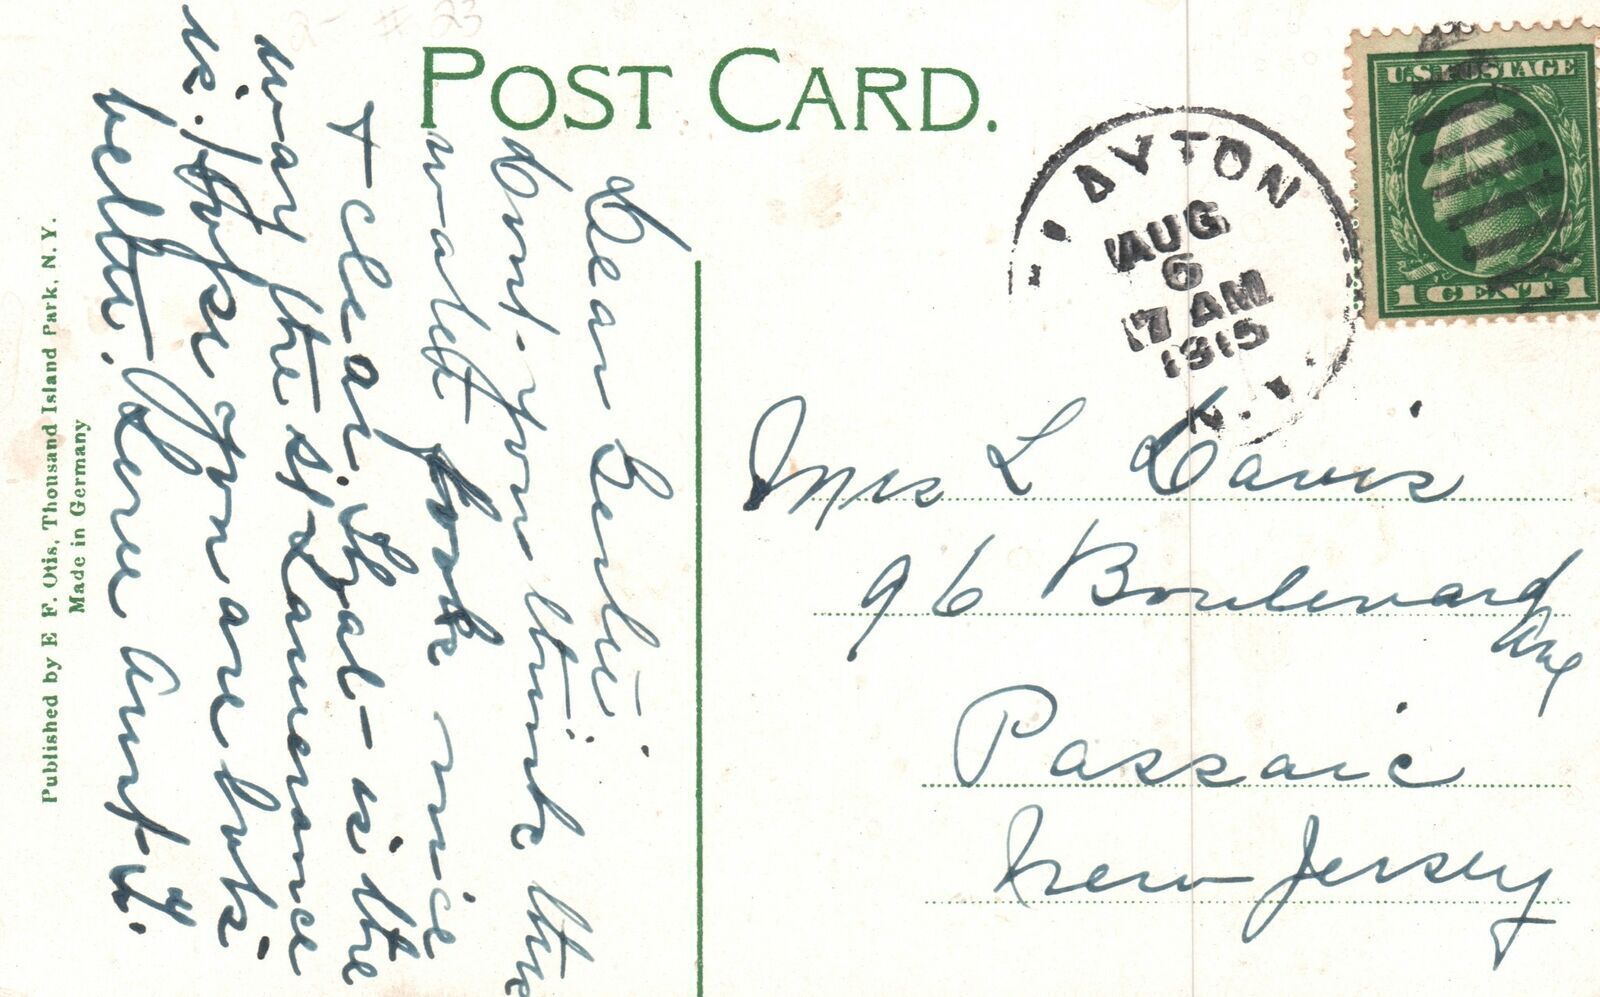 2- # 23
POST CARD.
CLAYTON
AUG
6
7 AM
1915
N.Y.
U.S. POSTAGE
1 CENT 1
Dear Bertie.
Dont you think the
water looks nice
+ clear. That is the
way the St Lawrence
is. Hope you are both
better. Love Aunt F.
Mrs L Davis
96 Boulevard
Ave
Passaic
New Jersey
Published by E. F. Otis, Thousand Island Park, N. Y.
Made in Germany